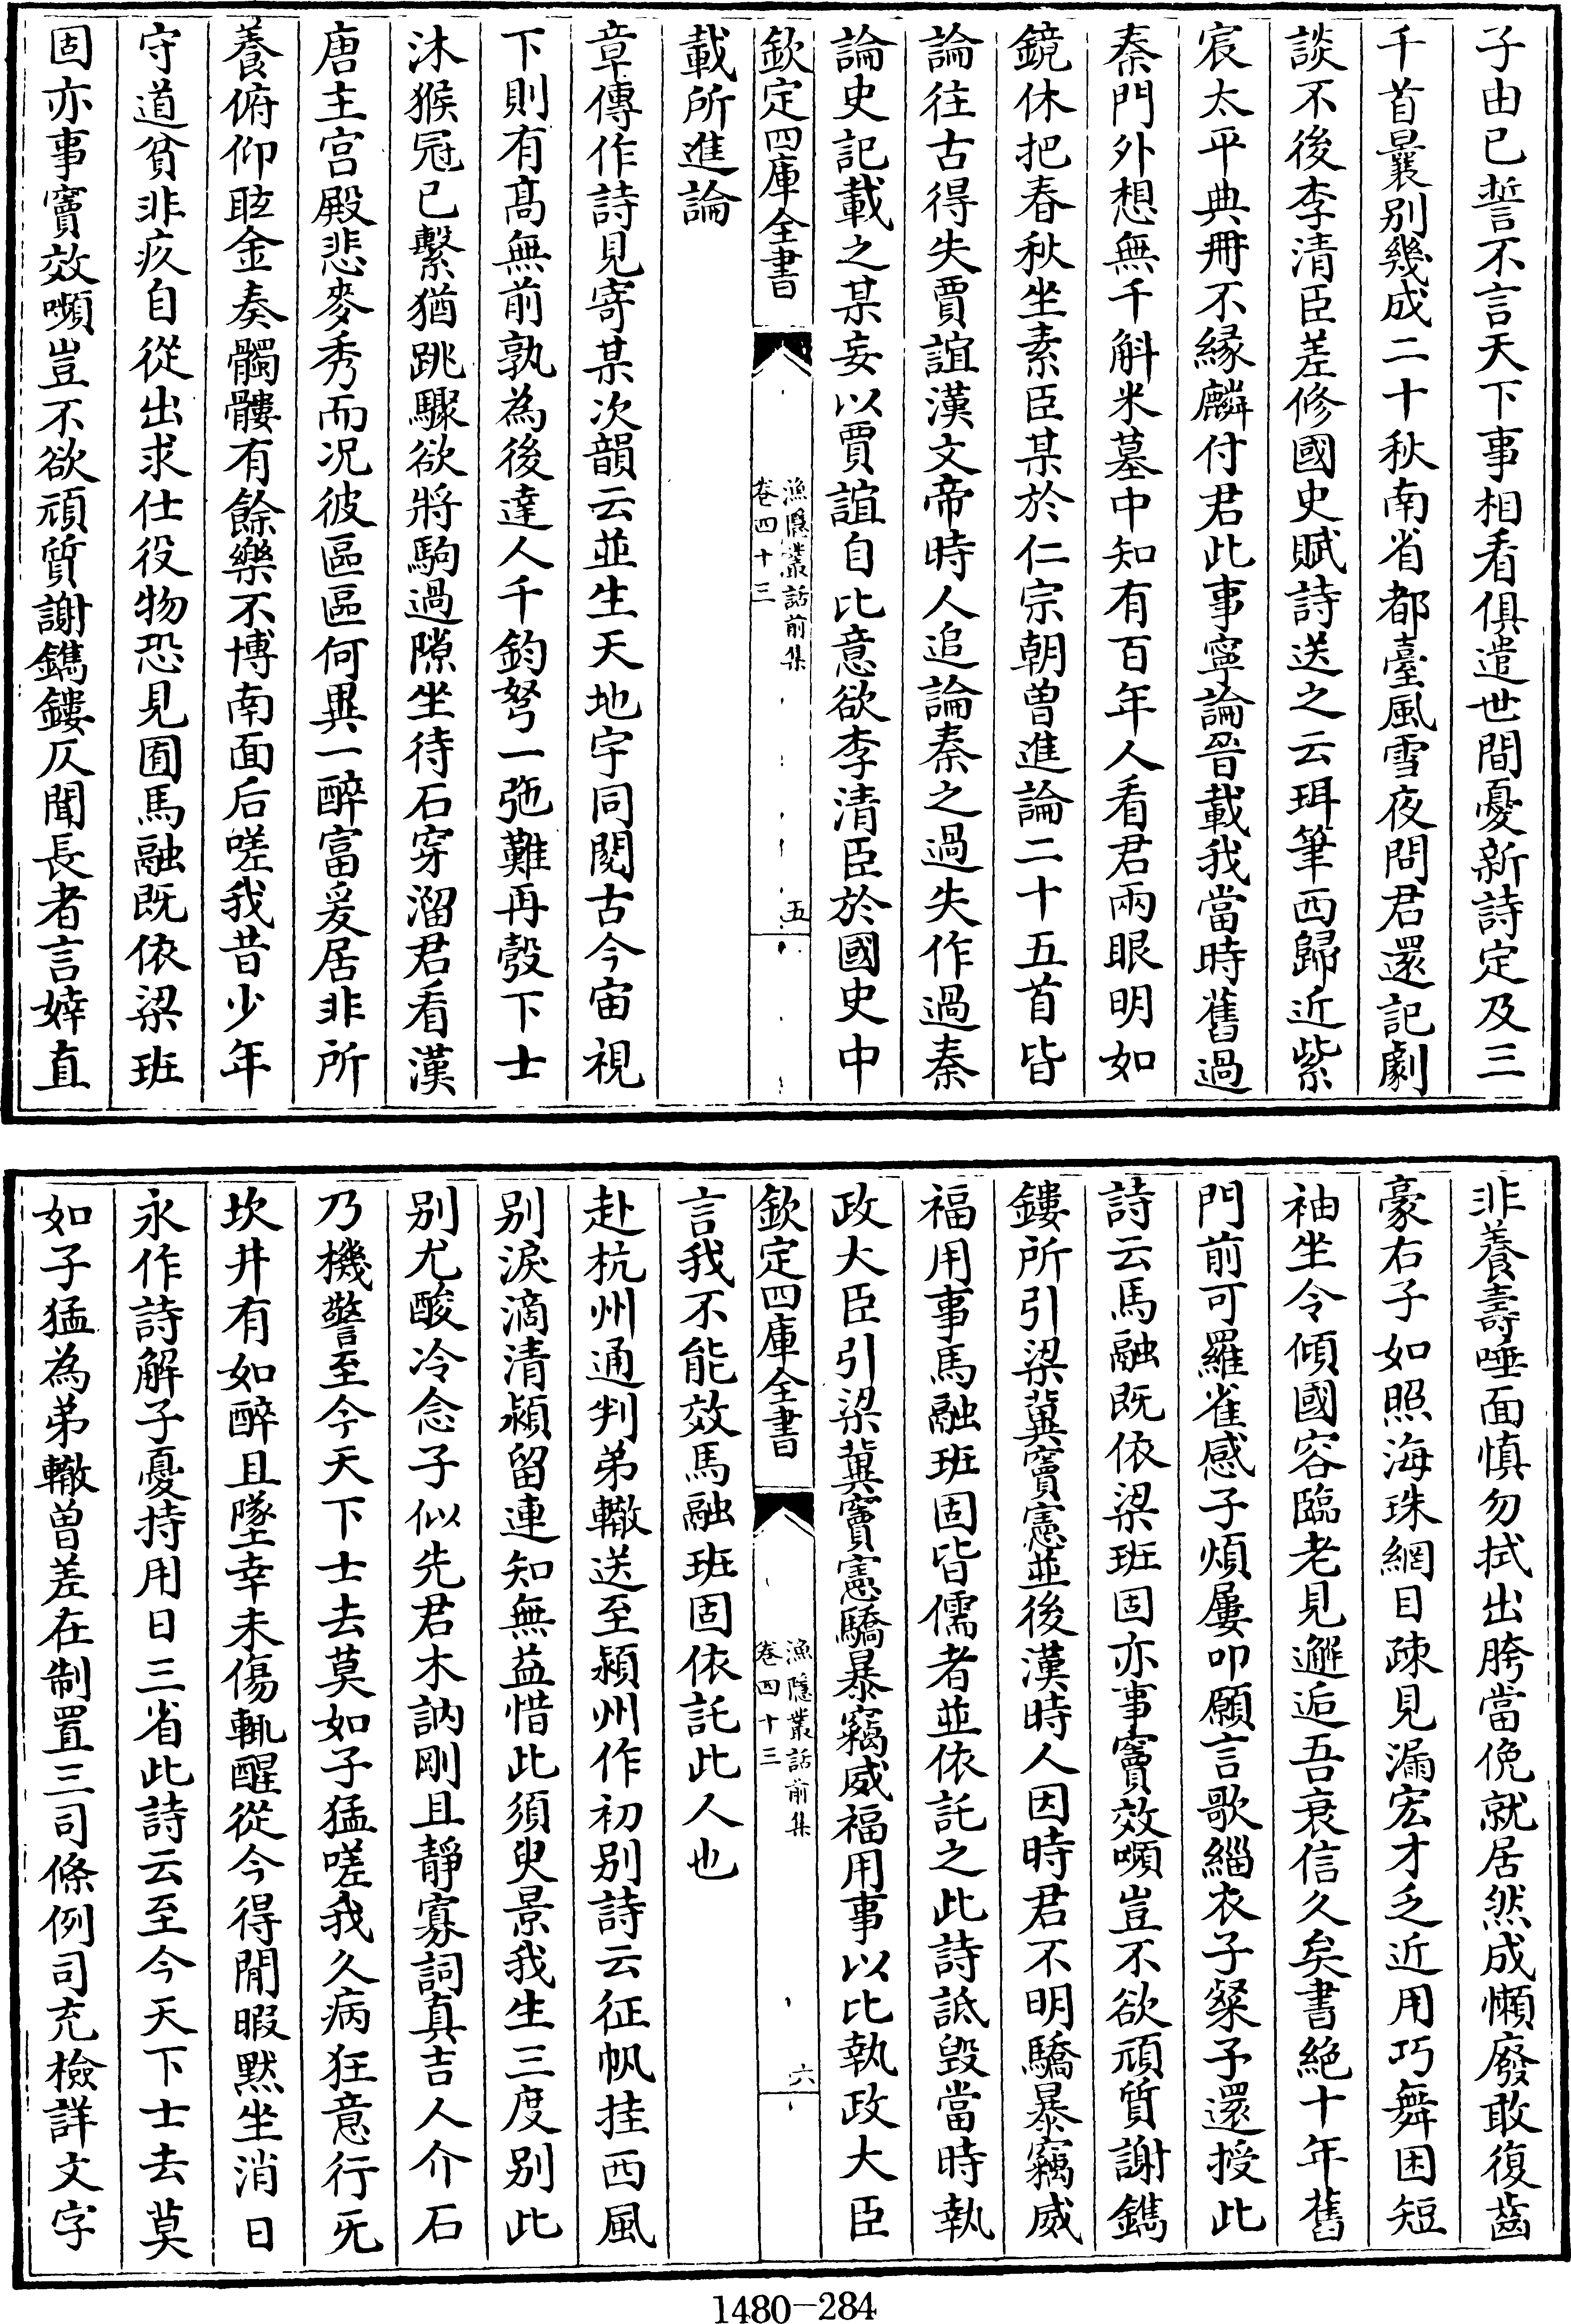 子由已誓不言天下事相看俱遣世間憂新詩定及三
千首曩别幾成二十秋南省都臺風雪夜問君還記劇
談不後李清臣差修國史賦詩送之云珥筆西歸近紫
宸太平典冊不緣麟付君此事寧論晉載我當時舊過
秦門外想無千斛米墓中知有百年人看君兩眼明如
鏡休把春秋坐素臣某於仁宗朝曾進論二十五首皆
論往古得失賈誼漢文帝時人追論秦之過失作過秦
論史記載之某妄以賈誼自比意欲李清臣於國史中
欽定四庫全書
漁隱叢話前集
卷四十三
五
載所進論
章傳作詩見寄某次韻云並生天地宇同閱古今宙視
下則有髙無前孰為後達人千鈞弩一弛難再彀下士
沐猴冠已繫猶跳驟欲將駒過隙坐待石穿溜君看漢
唐主宫殿悲麥秀而况彼區區何異一醉富爰居非所
養俯仰眩金奏髑髏有餘樂不博南面后嗟我昔少年
守道貧非疚自從出求仕役物恐見囿馬融既依梁班
固亦事竇效嚬豈不欲頑質謝鐫鏤仄聞長者言婞直
非養壽唾面慎勿拭出胯當俛就居然成懶廢敢復齒
豪右子如照海珠網目疎見漏宏才乏近用巧舞困短
袖坐令傾國容臨老見邂逅吾衰信久矣書絶十年舊
門前可羅雀感子煩屢叩願言歌緇衣子粲予還授此
詩云馬融既依梁班固亦事竇效嚬豈不欲頑質謝鐫
鏤所引梁冀竇憲並後漢時人因時君不明驕暴竊威
福用事馬融班固皆儒者並依託之此詩詆毀當時執
政大臣引梁冀竇憲驕暴竊威福用事以比執政大臣
欽定四庫全書
漁隱叢話前集
卷四十三
六
言我不能效馬融班固依託此人也
赴杭州通判弟轍送至潁州作初别詩云征帆挂西風
别淚滴清潁留連知無益惜此須臾景我生三度别此
别尤酸冷念子似先君木訥剛且靜寡詞真吉人介石
乃機警至今天下士去莫如子猛嗟我久病狂意行旡
坎井有如醉且墜幸未傷輒醒從今得閒暇黙坐消日
永作詩解子憂持用日三省此詩云至今天下士去莫
如子猛為弟轍曾差在制置三司條例司充檢詳文字
1480-284